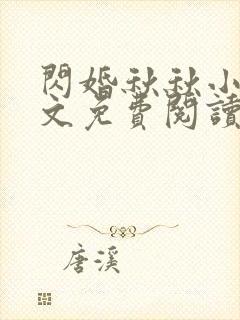 閃婚秋秋小
文免費閱讀
唐溪